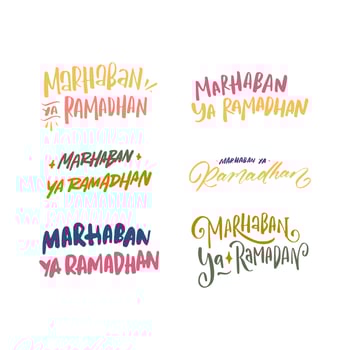 Marhaban
ya Ramadhan
Marhaban
ya Ramadhan
Marhaban
ya Ramadhan
Marhaban
ya Ramadhan
Marhaban ya
Ramadhan
Marhaban
ya Ramadan